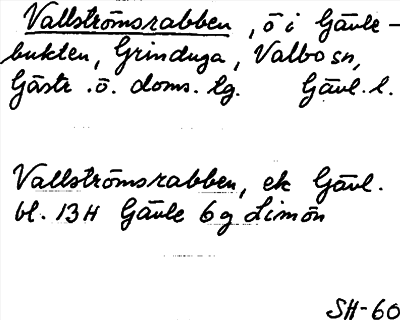 Vallströmsrabben, ö i Gävle-
bukten, Grinduga, Valbo sn,
Gästr. ö. doms. lg. Gävl. l.
Vallströmsrabben, ek Gävl.
bl. 13H Gävle 6g Limön
SH-60